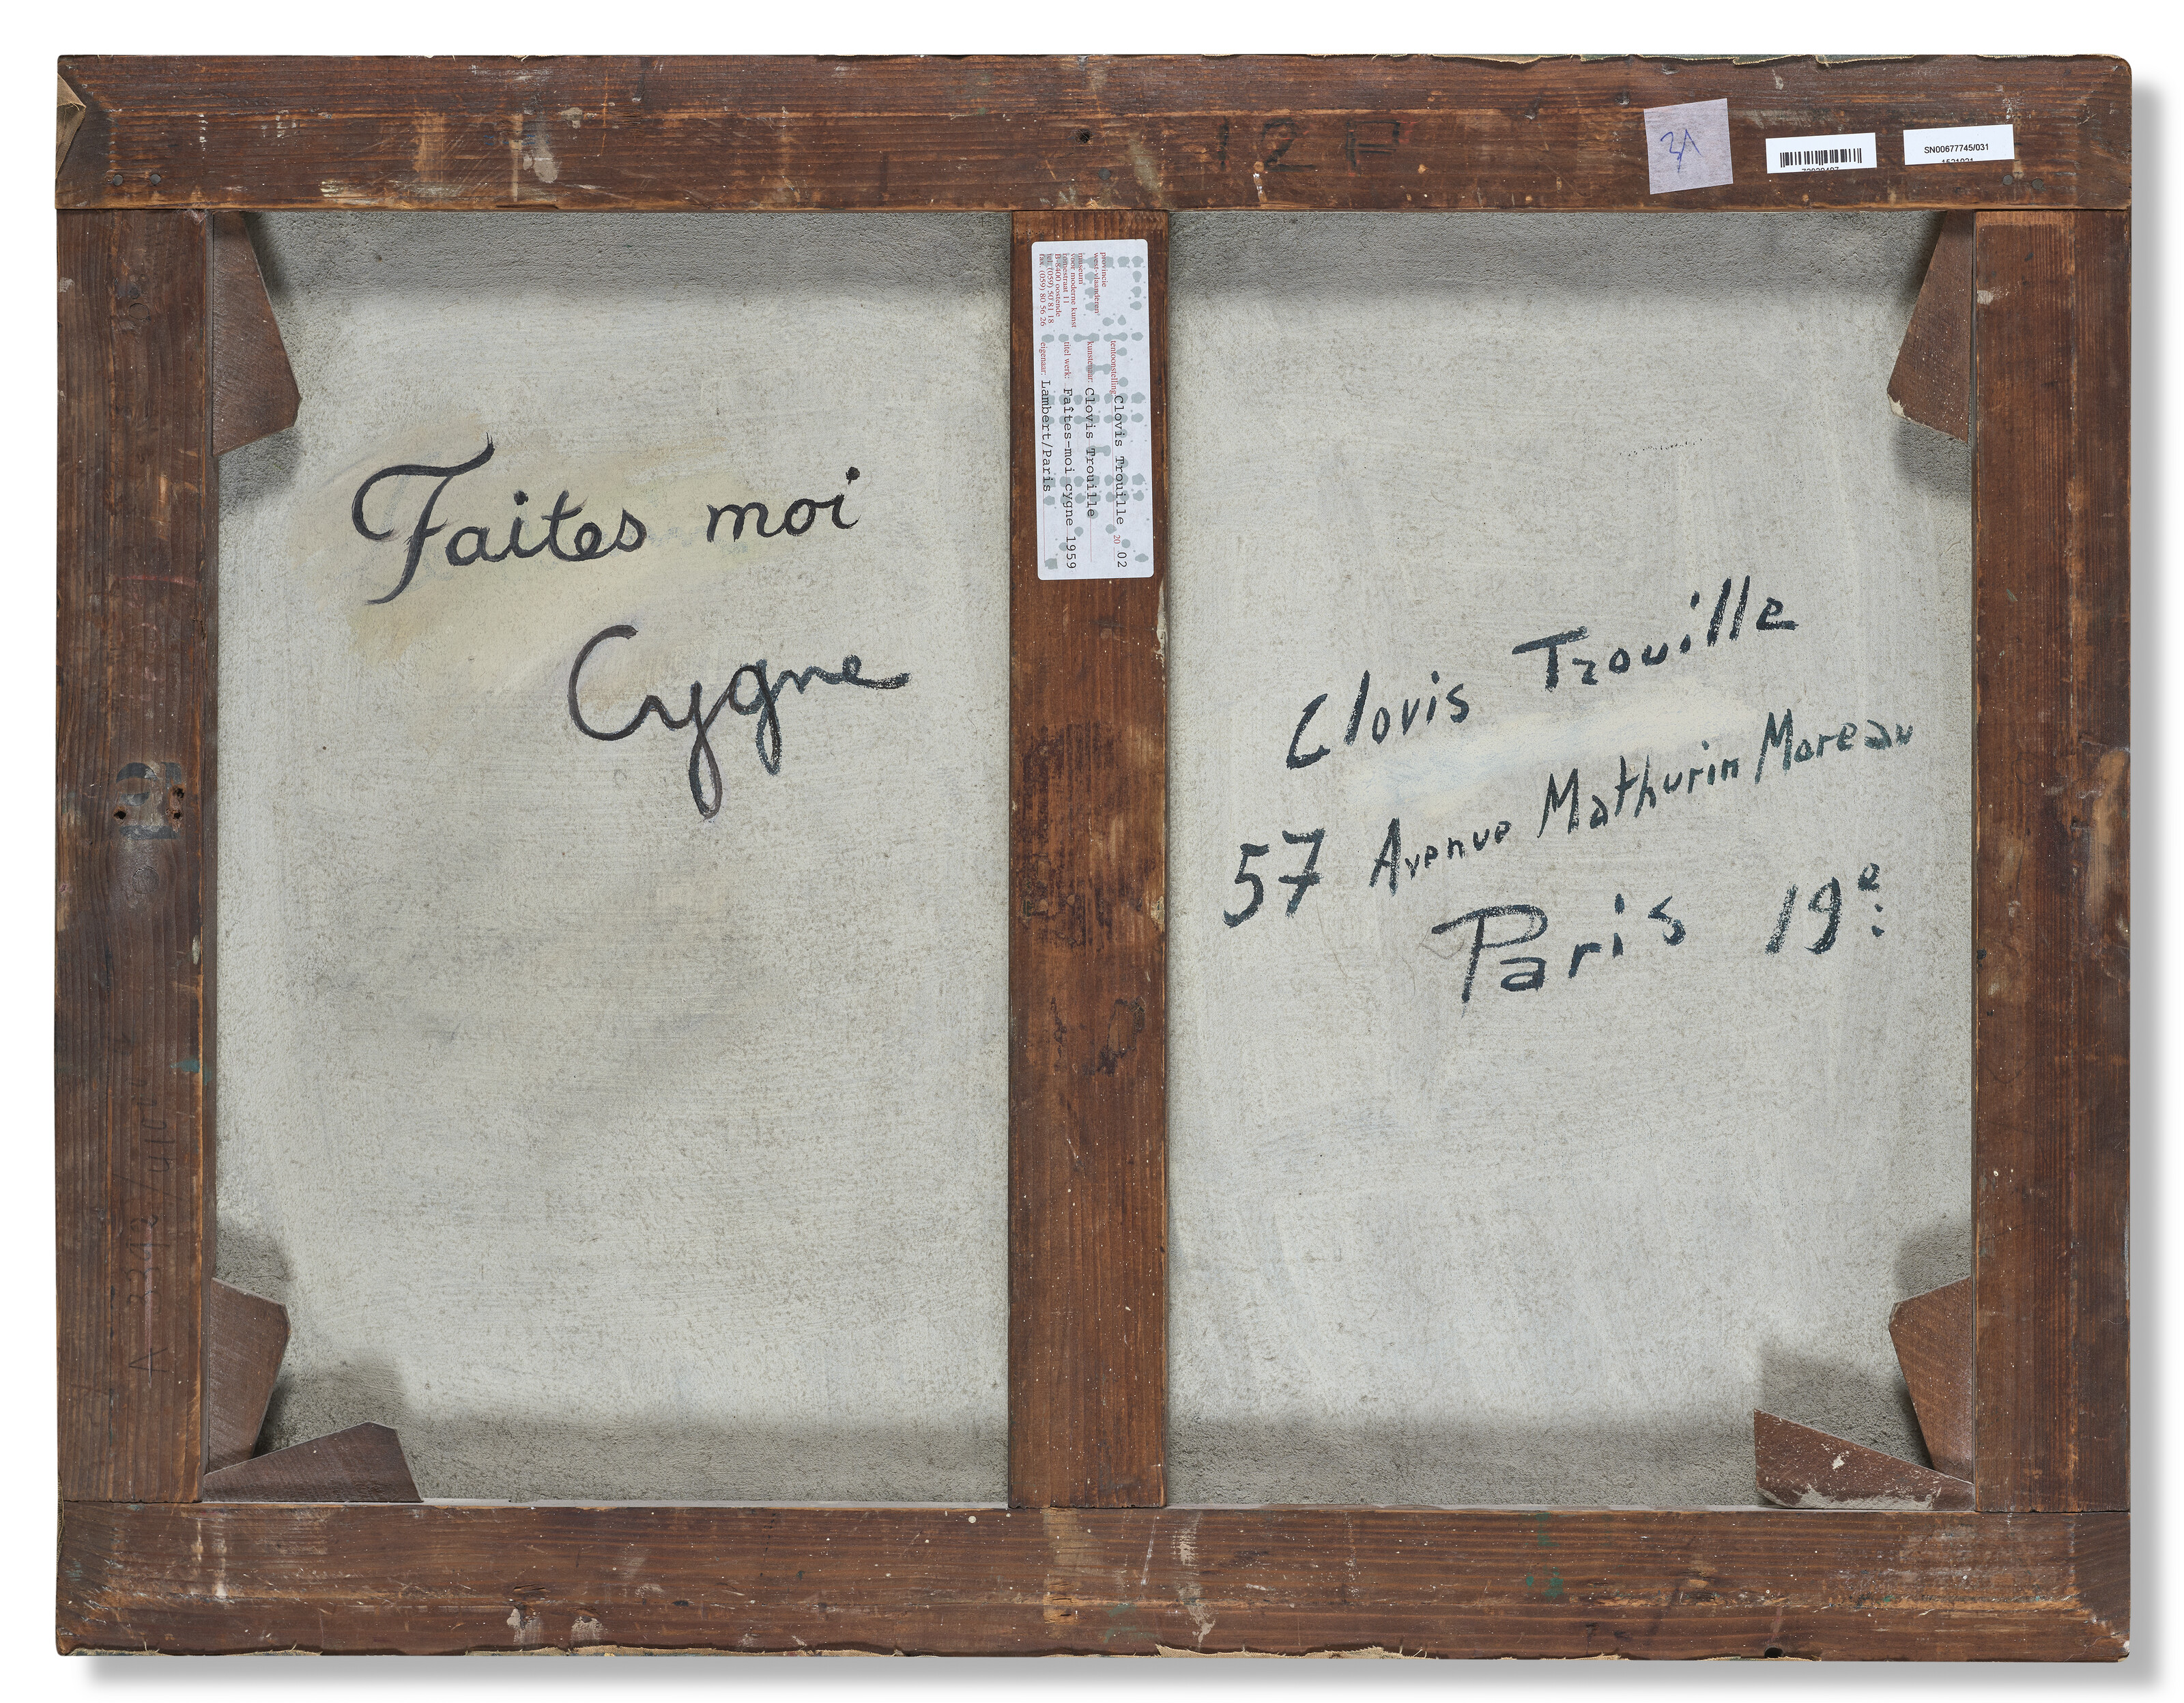 12 H
3A
SN00677745/031
provincie
west-vlaanderen
museum
voor moderne kunst
romestraat 11
B-8400 oostende
tel. (059) 50 81 18
fax. (059) 80 56 26
tentoonstelling: Clovis Trouille 20 02
kunstenaar: Clovis Trouille
titel werk: Faîtes-moi cygne 1959
eigenaar: Lambert/Paris
Faites moi
Cygne
Clovis Trouille
57 Avenue Mathurin Moreau
Paris 19e